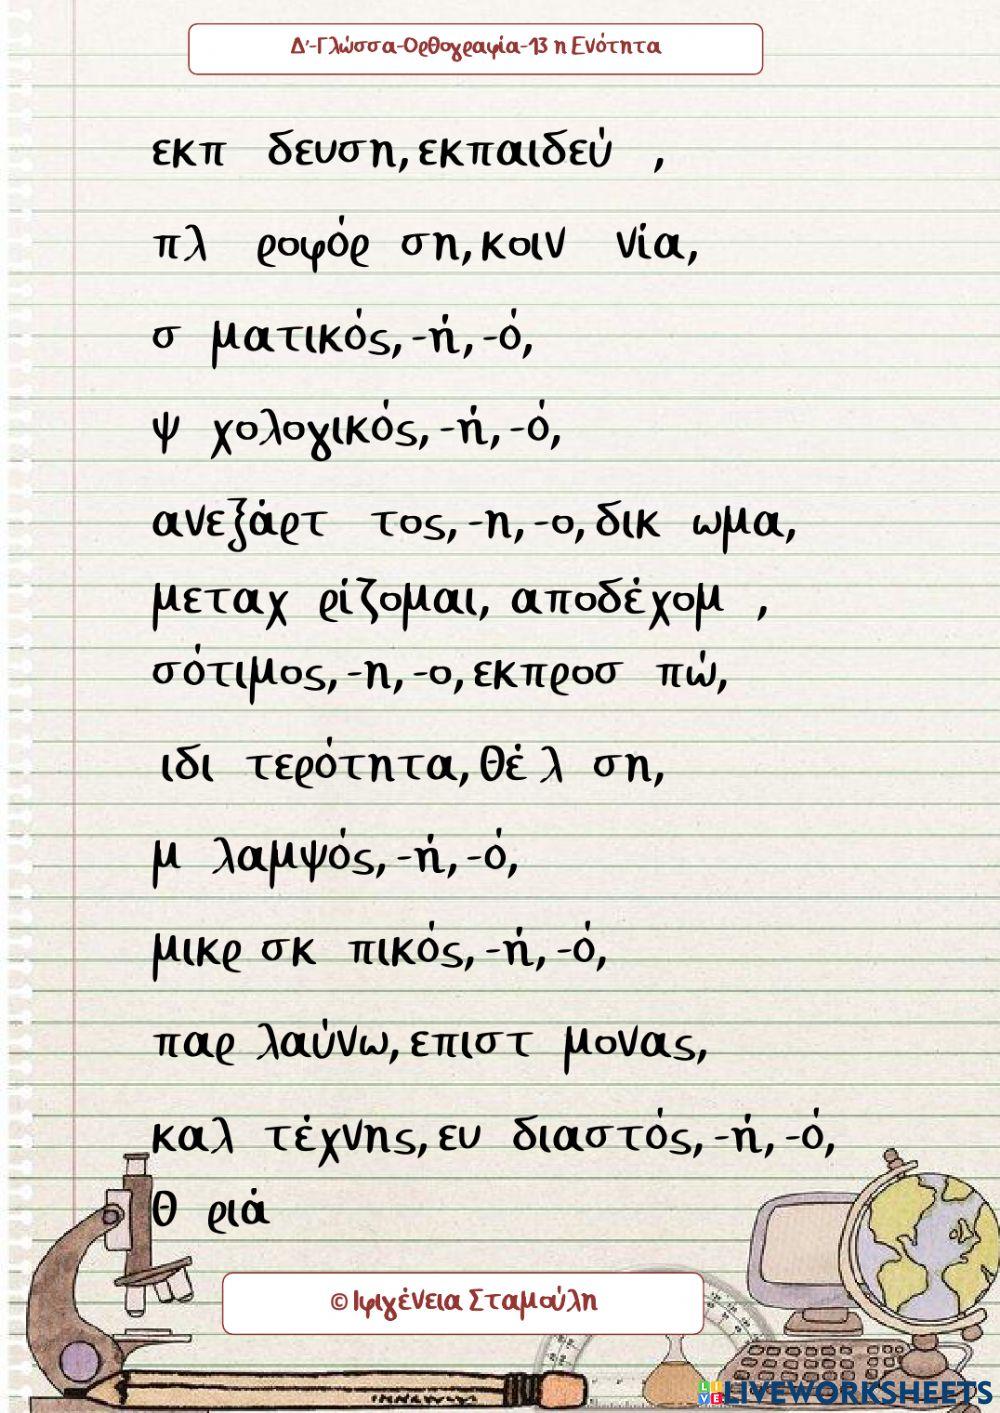 Δ'-Γλώσσα-Ορθογραφία-13 η Ενότητα
εκπ δευση, εκπαιδεύ ,
πλ ροφόρ ση, κοιν νία,
σ ματικός, -ή, -ό,
ψ χολογικός, -ή, -ό,
ανεξάρτ τος, -η, -ο, δικ ωμα,
μεταχ ρίζομαι, αποδέχομ ,
σότιμος, -η, -ο, εκπροσ πώ,
ιδι τερότητα, θέ λ ση,
μ λαμψός, -ή, -ό,
μικρ σκ πικός, -ή, -ό,
παρ λαύνω, επιστ μονας,
καλ τέχνης, ευ διαστός, -ή, -ό,
Θ ριά
© Ιφιγένεια Σταμούλη
LIVE LIVEWORKSHEETS